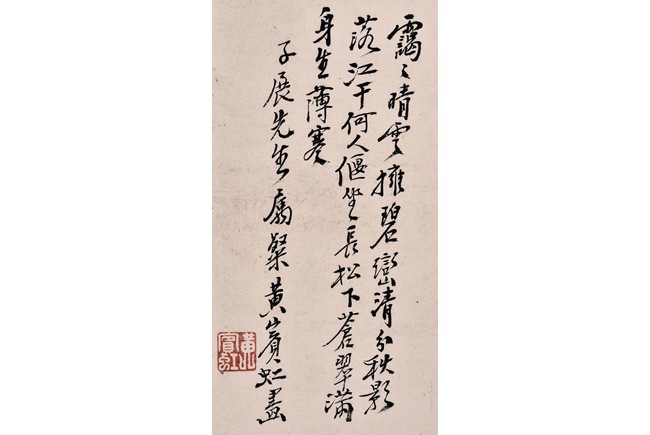 靄〻晴雲擁碧巒清分秋影
落江干何人偃坐長松下蒼翠滿
身生薄寒
子展先生屬粲黃賓虹畫
黃山賓虹